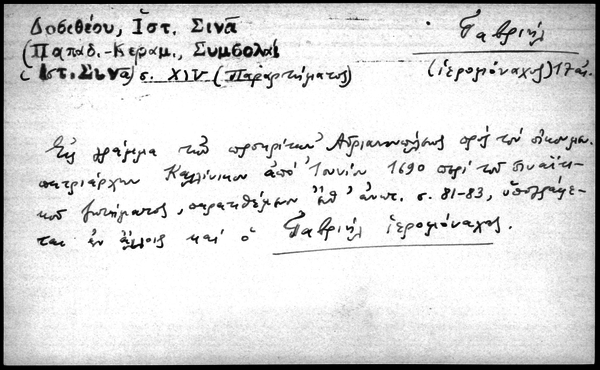 Δοσιθέου, Ἱστ. Σινᾶ
Γαβριήλ
(Παπαδ.-Κεραμ., Συμβολαὶ
Ἱστ. Σινᾶ) σ. XIV (Παραρτήματος)
(ἱερομόναχος) 17 αἰ.
Εἰς γράμμα τῶν προκρίτων Ἀδριανουπόλεως πρὸς τὸν οἰκουμ.
πατριάρχην Καλλίνικον ἀπὸ Ἰουνίου 1690 περὶ τοῦ Σιναϊτι-
κοῦ ζητήματος, παρατιθέμενον ἀνωτ. σ. 81-83, ὑπογράφε-
ται ἐν ἄλλοις καὶ ὁ Γαβριὴλ ἱερομόναχος.